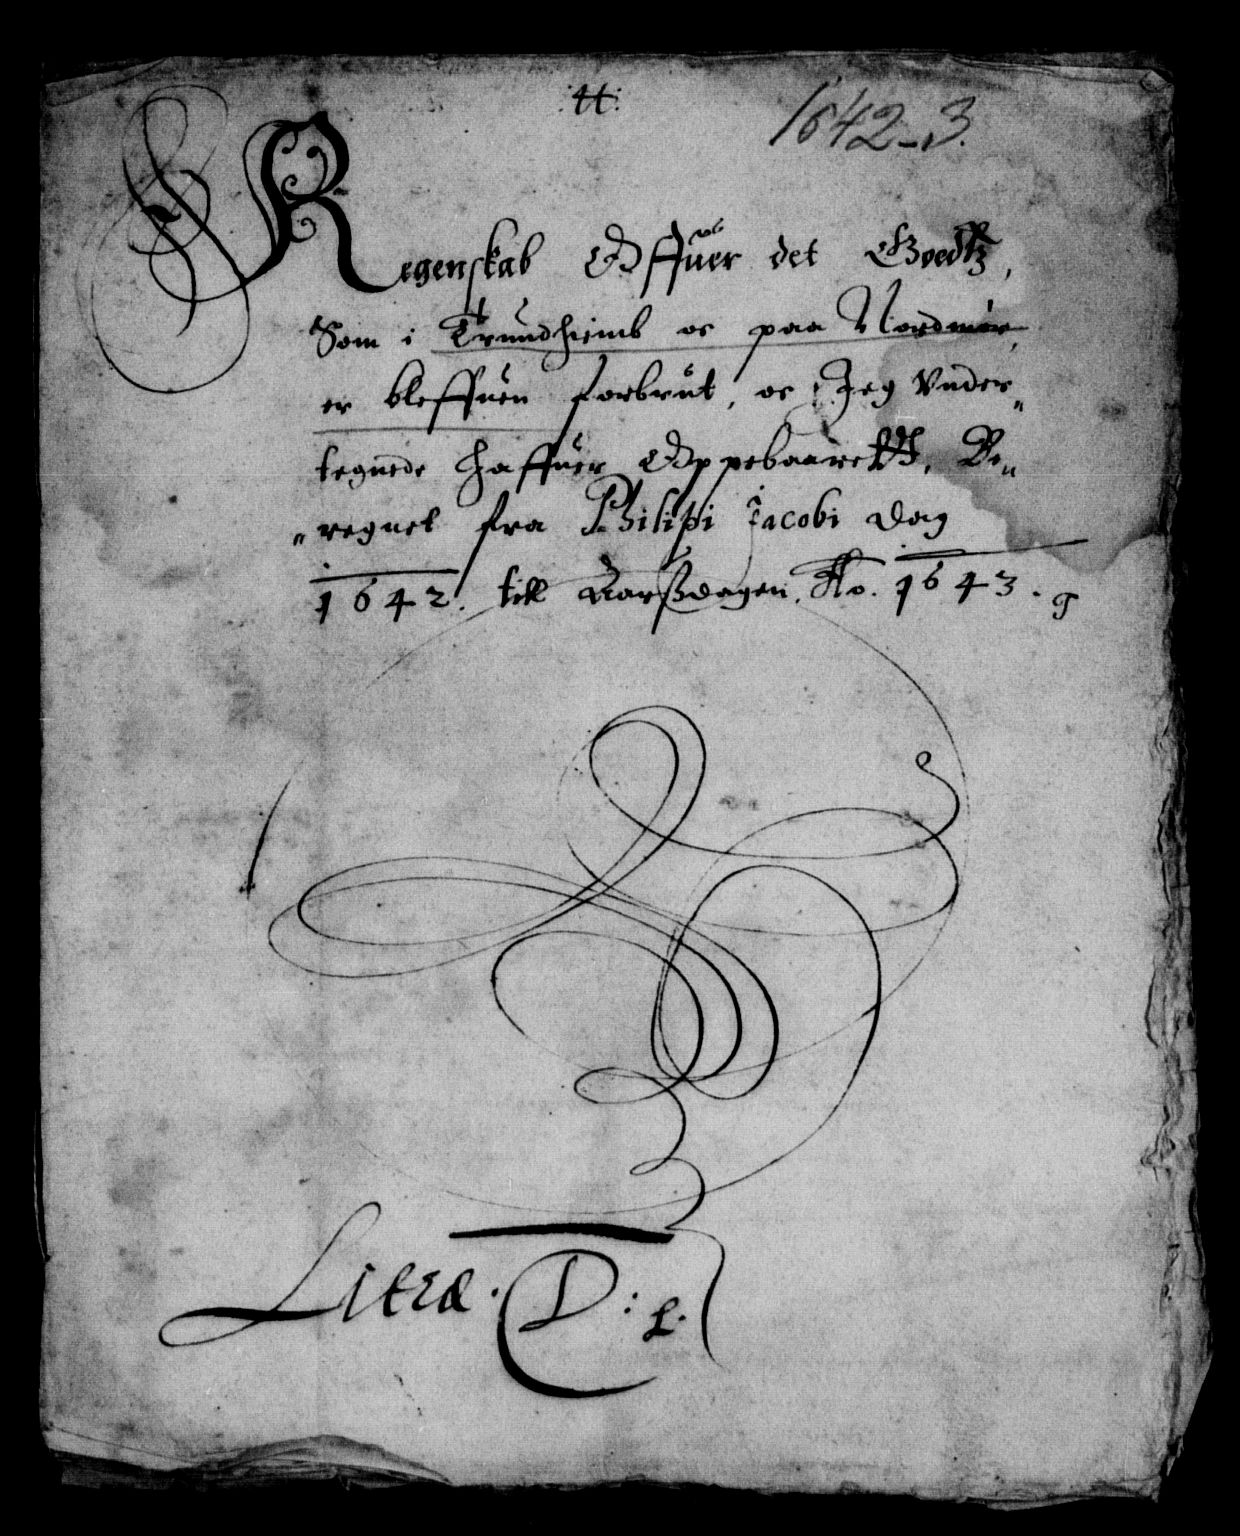 1642-3.
Regenskab Offuer det Goedtz,
Som i Trundhiemb oc paa Nordmør,
er bleffuen forbrut, oc Jeg Vnder„
tegnede haffuer Oppebaarett, Be„
„regnet fra Philipi Jacobi dag
1642. till Aarsdagen. Ao. 1643.
Litra. D: